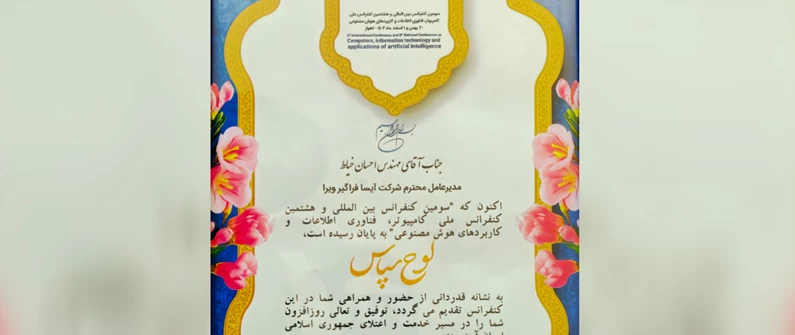 سومین کنفرانس بین المللی و هشتمین کنفرانس ملی
کامپیوتر، فناوری اطلاعات و کاربردهای هوش مصنوعی
3rd International Conference and 8th National Conference on
Computers, information technology and
applications of artificial intelligence
جناب آقای مهندس احسان خیاط
مدیرعامل محترم شرکت آیسا فراگیر ویرا
اکنون که "سومین کنفرانس بین المللی و هشتمین
کنفرانس ملی کامپیوتر، فناوری اطلاعات و
کاربردهای هوش مصنوعی" به پایان رسیده است،
لوح سپاس
به نشانه قدردانی از حضور و همراهی شما در این
کنفرانس تقدیم می گردد، توفیق و تعالی روزافزون
شما را در مسیر خدمت و اعتلای جمهوری اسلامی